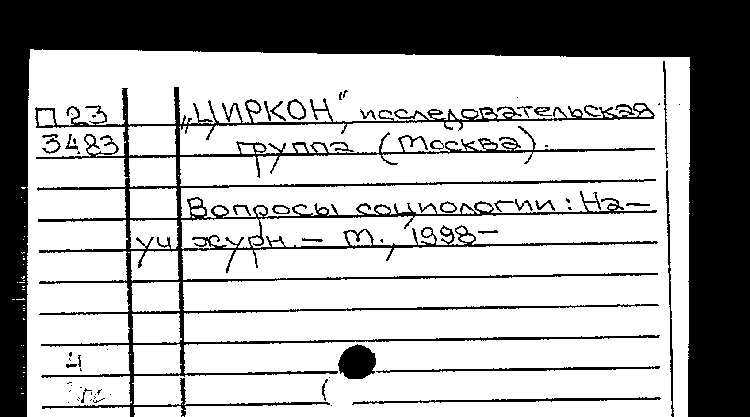 П23 „ЦИРКОН", исследовательская
3483 группа (Москва).
Вопросы социологии: На-
уч. журн. — М., 1998-
4